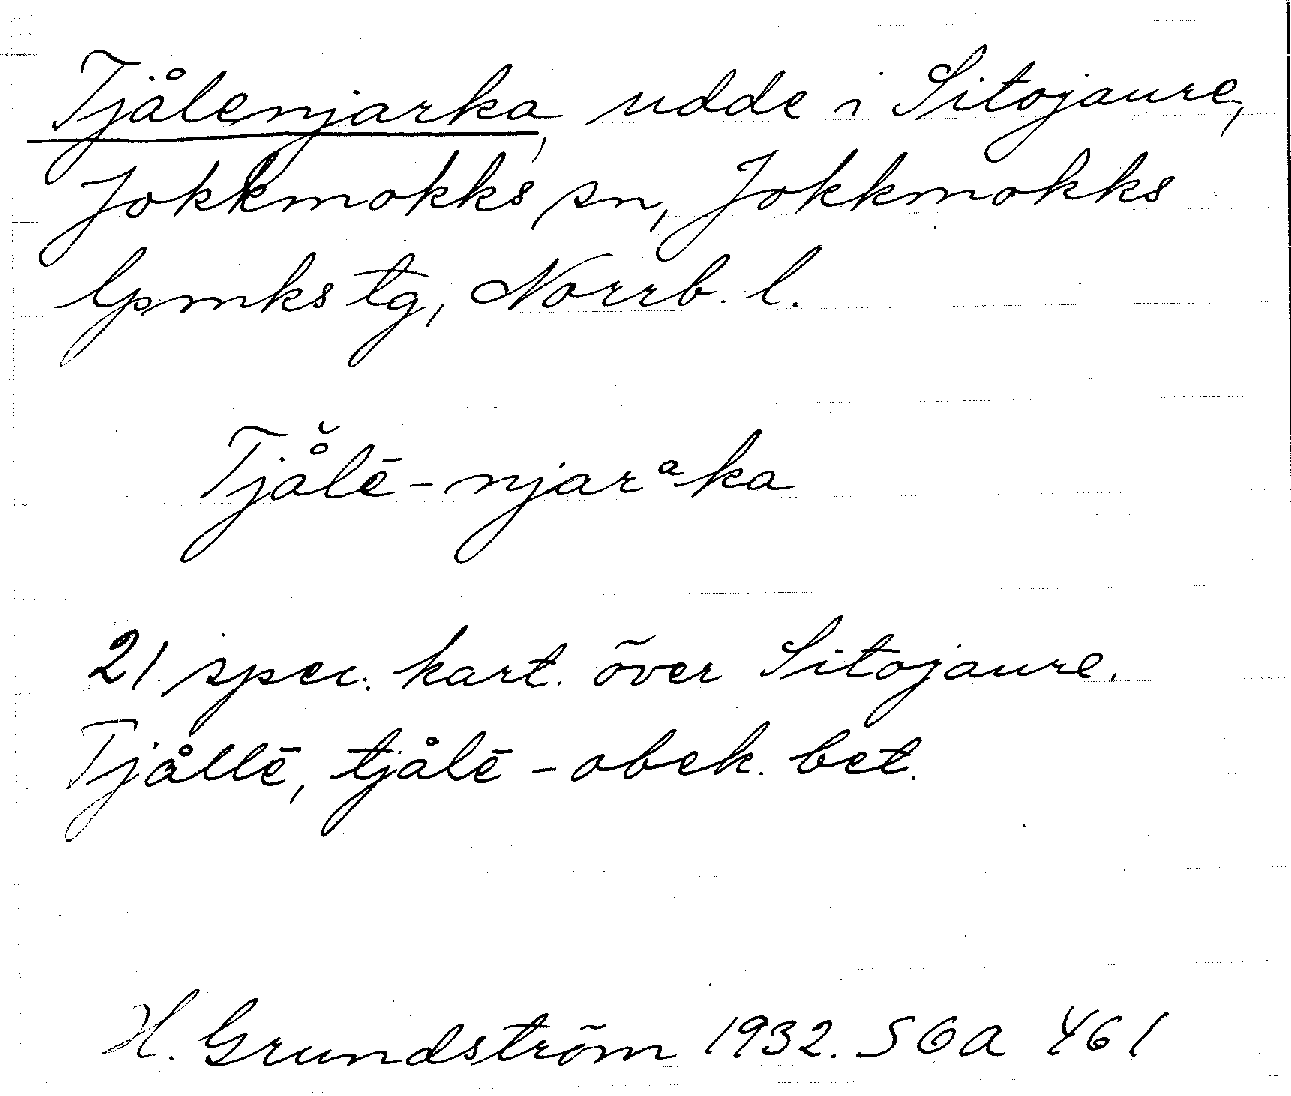 Tjålenjarka, udde i Sitojaure,
Jokkmokks sn, Jokkmokks
lpmks tg, Norrb. l.
Tjå̆lē-njarᵃka
21 spec. kart. över Sitojaure.
Tjållē, tjålē - obek. bet.
H. Grundström 1932. SOA 461